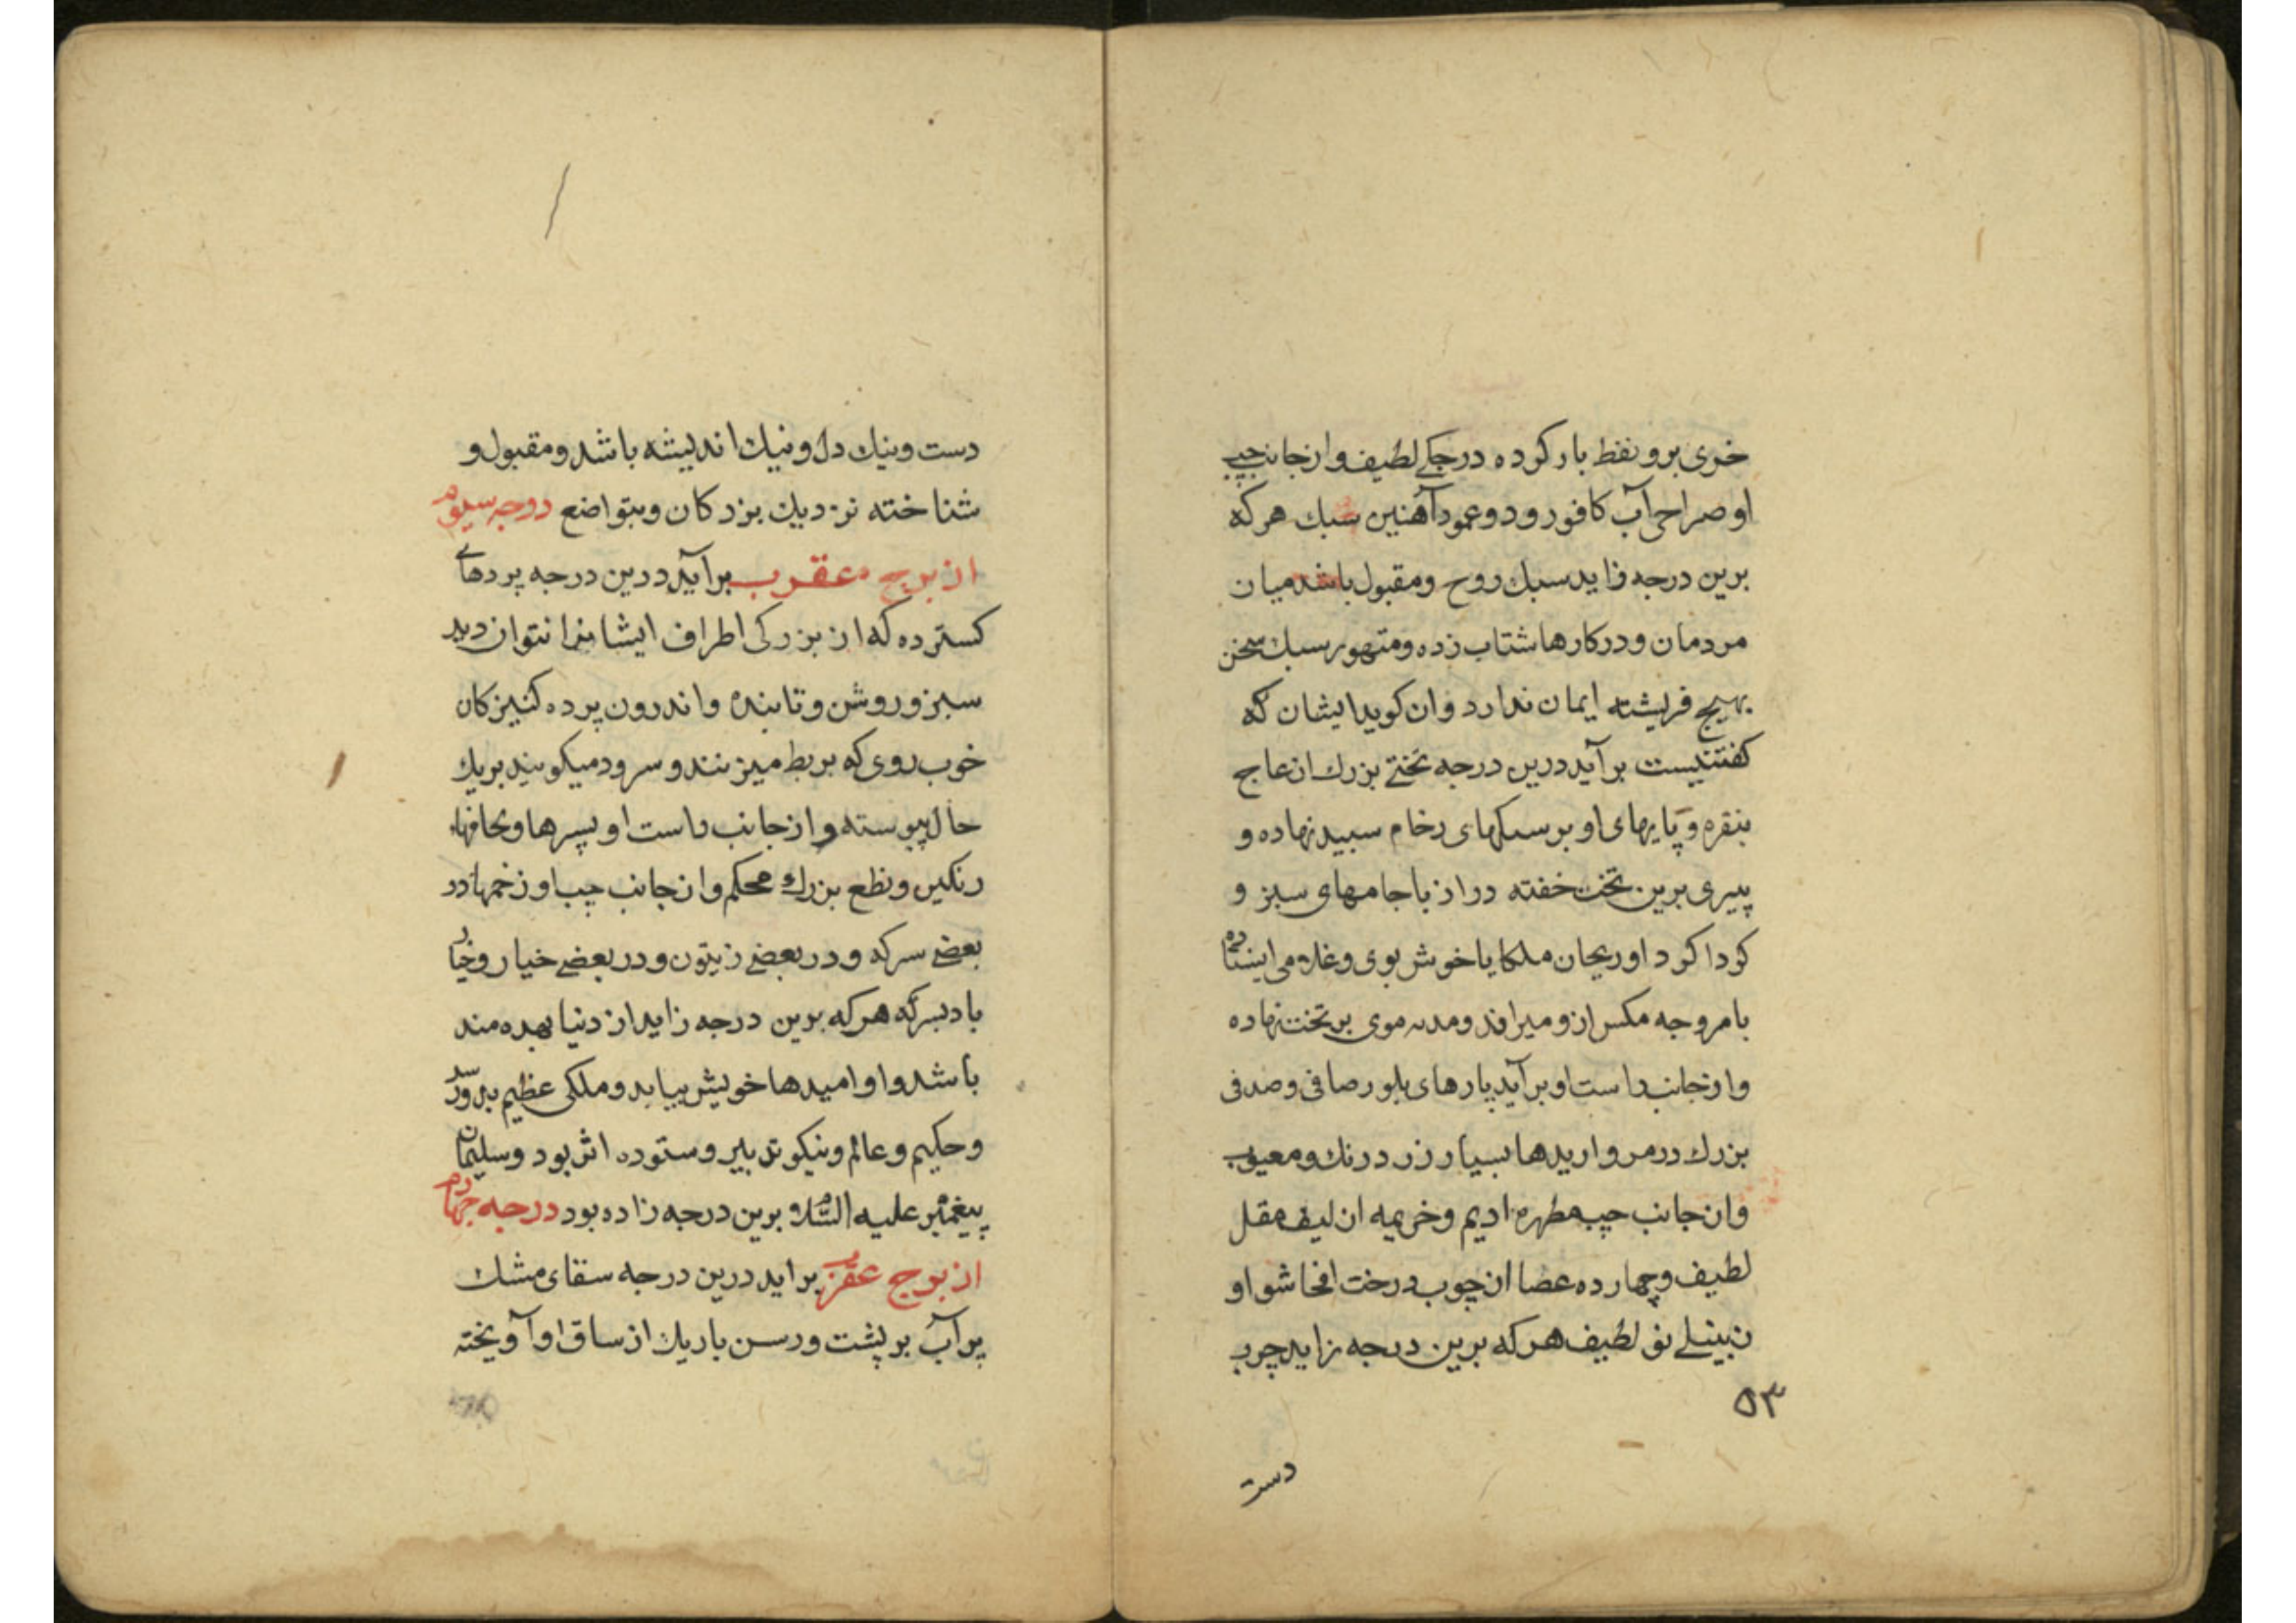 خری برو نفط بار کرده درجکے لطیف و از جانب چپ
او صراحی آب کافور و دو عمود آهنین سبك هر که
برین درجه زاید سبك روح و مقبول باشد میان
مردمان و در کارها شتاب زده و متهور سبك سخن
بهیچ فریشته ایمان ندارد و ان کوید ایشان که
کفتنیست برآید درین درجه تختے بزرك از عاج
بنقره و پایهای او بر سنکهای رخام سپید نهاده و
پیری برین تخت خفته دراز با جامهای سبز و
کردا کرد او ریحان ملکایا خوش بوی و غلامی ایستاده
با مروحه مکس ازو میراند و موی بر تخت نهاده
و از جانب راست او برآید پارهای بلور صافی و صدفی
بزرك درمرواریدها بسیار زرد رنك و معیوب
وان جانب چپ مطهره ادیم و خریمه از لیف مقل
لطیف و چهارده عصا از چوب درخت
لطیف هر که برین درجه زاید چرب
۵۳
دست
دست و نیك دل و نیك اندیشه باشد و مقبول و
شناخته نزدیك بزرکان و بتواضع درجه سیوم
از برج عقرب برآید درین درجه پردهاے
کسترده که از بزرکی اطراف ایشانرا نتوان دید
سبز و روشن و تابنده و اندرون پرده کنیزکان
خوب روی که بربط میزنند و سرود میکویند بریك
حال پیوسته و از جانب راست او بسرها و لحافها
رنکین و نطع بزرك محکم و از جانب چپ او خمها در
بعضے سرکه و در بعضے زیتون و در بعضے خیار و خیار
باد بسرکه هر که برین درجه زاید از دنیا بهره مند
باشد و او امیدها خویش بیابد و ملکی عظیم بدو رسد
و حکیم و عالم و نیکو تدبیر و ستوده اثر بود و سلیمان
پیغمبر علیه السلام برین درجه زاده بود درجه چهارم
از برج عقرب براید درین درجه سقای مشك
پر آب بر پشت و رسن باریك از ساق او آویخته